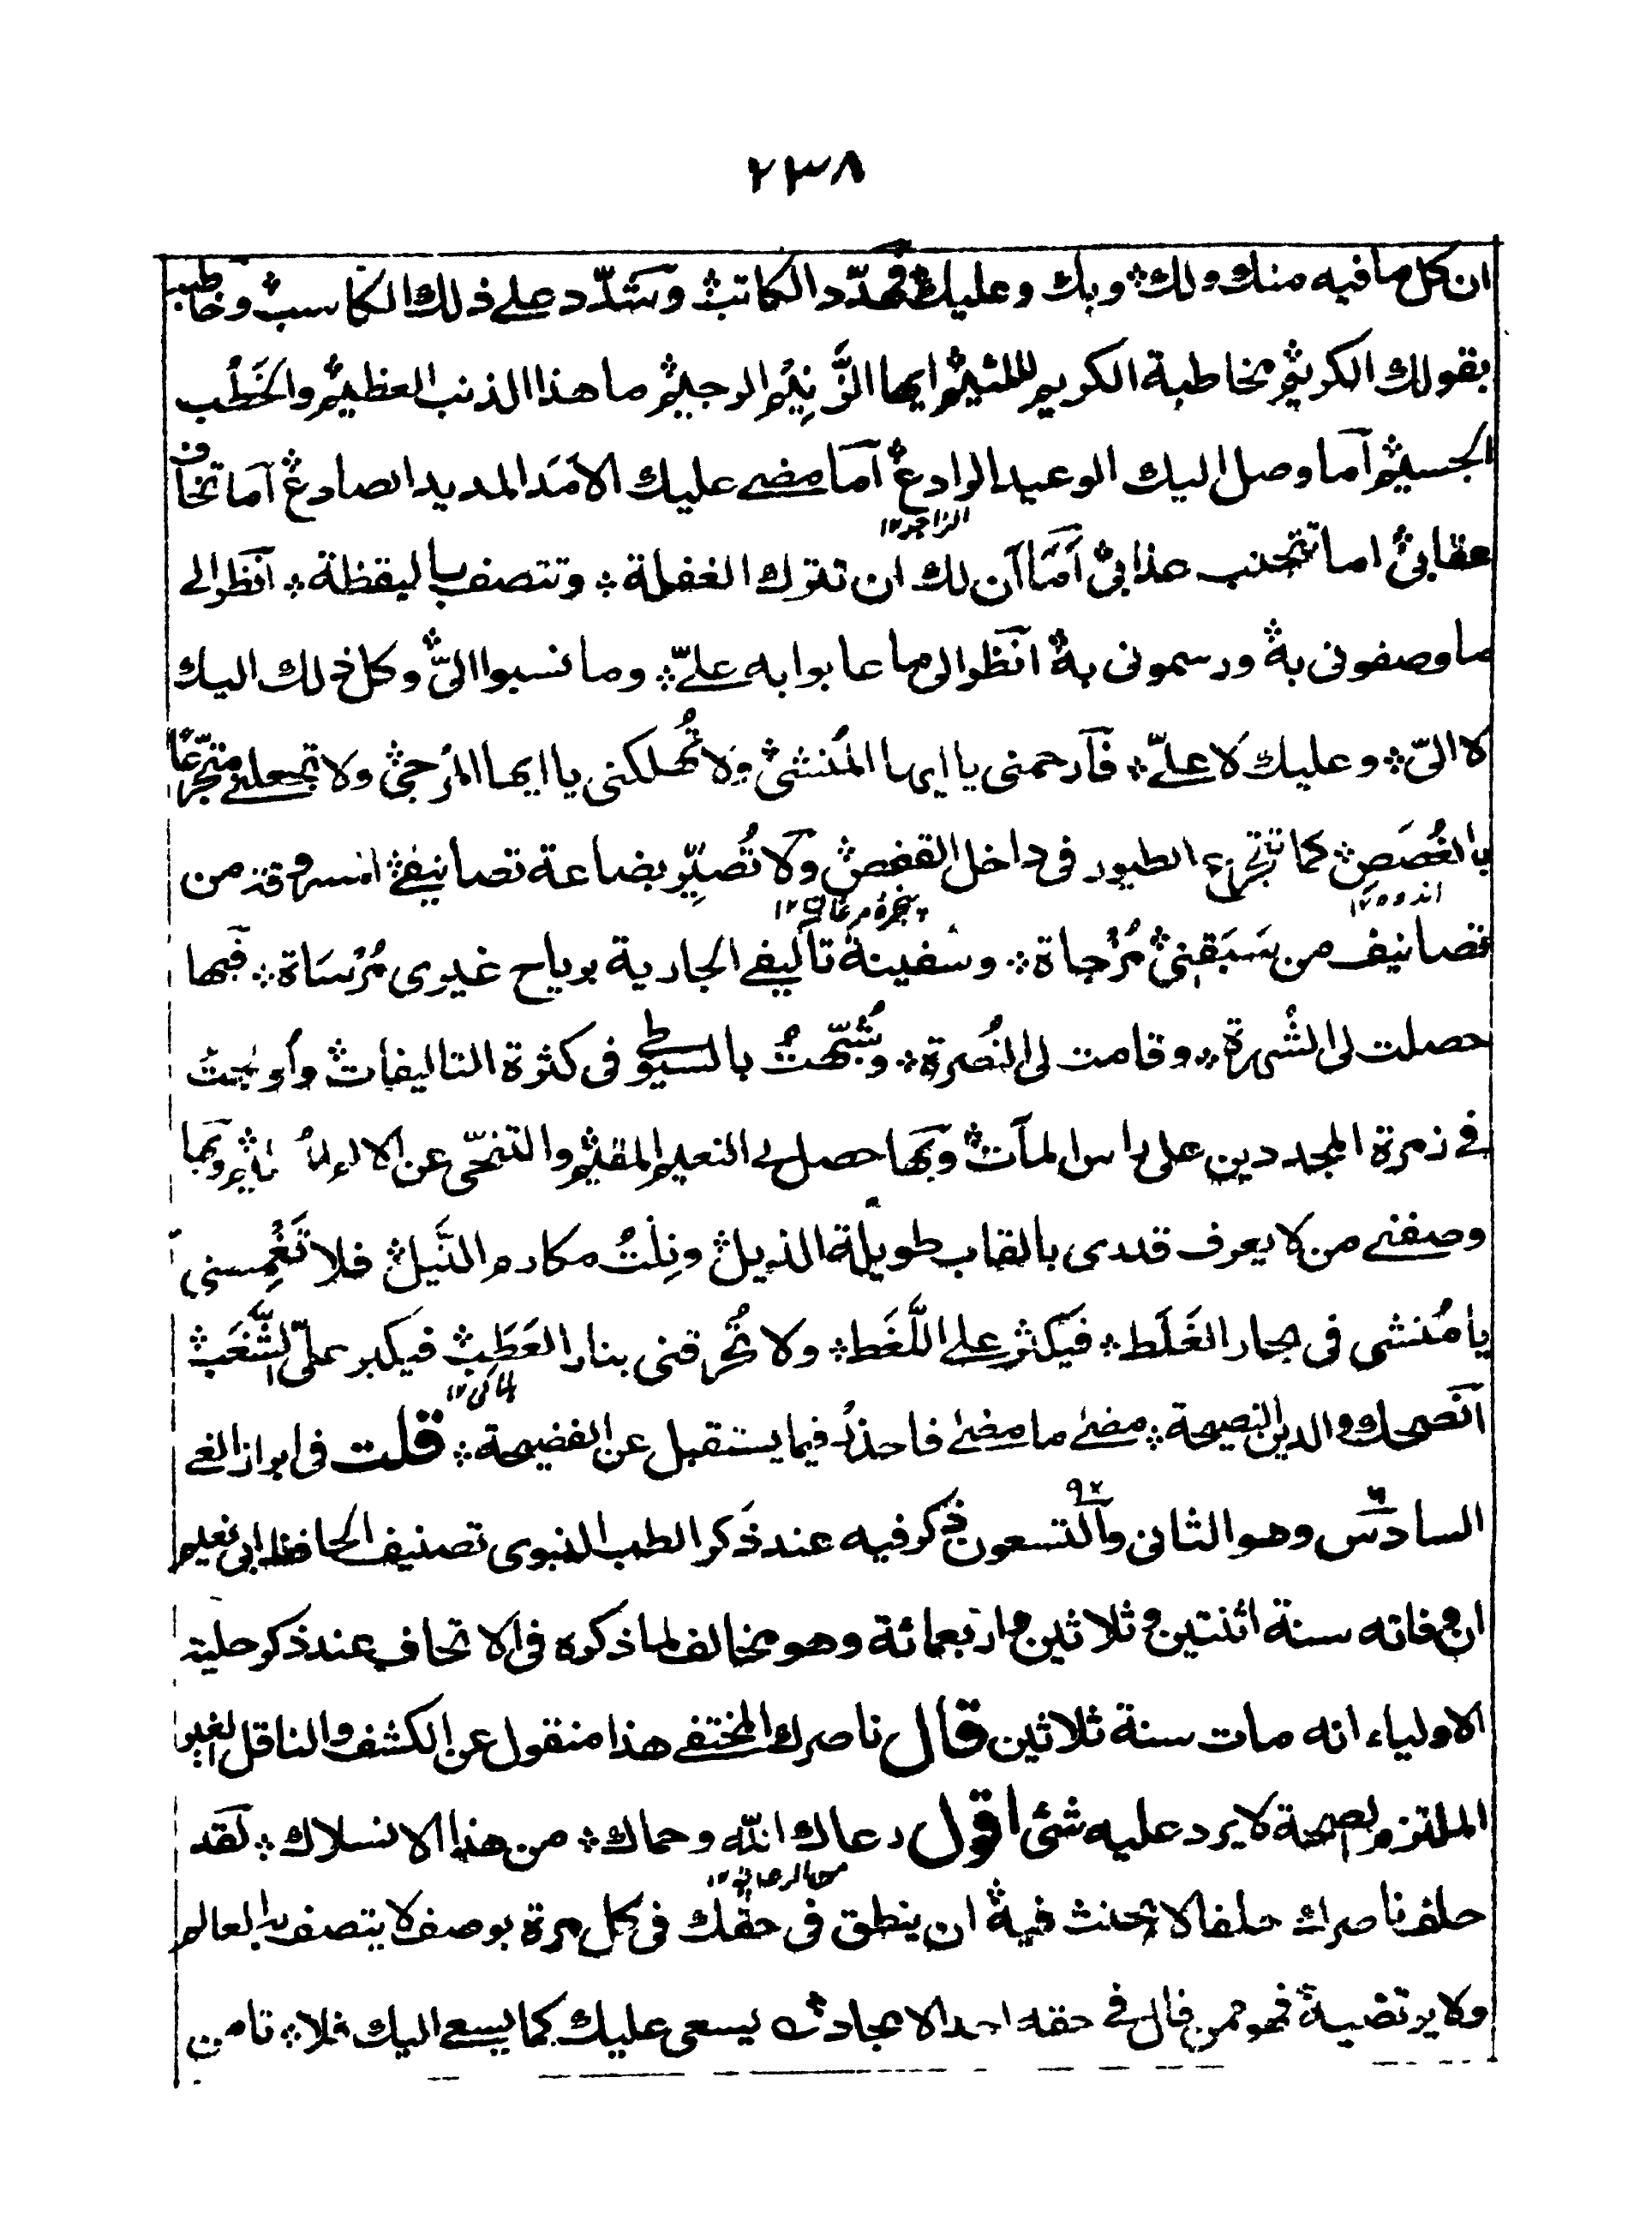 ٢٣٨
ان كل ما فيه منك ولك ؞ وبك وعليك ؞ فهدّد الكاتب ؞ وشدّد على ذلك الكاسب ؞ وخاطبه
بقولك الكريم ؞ مخاطبة الكريم للئيم ؞ ايها الزَّنِيْم الرجيم ؞ ما هذا الذنب العظيم ؞ والخَطْب
الجسيم ؞ آما وصل اليك الوعيد الوادع ؞ آما مضى عليك الاَمَد المديد الصادع ؞ آما تخاف
الزاجر ١٢
عقابى ؞ اما تتجنب عذابى ؞ آمَا آن لك ان تترك الغفلة ؞ وتتصف باليقظة ؞ آنظر الى
ما وصفونى به ؞ ورسمونى به ؞ انظر الى ما عابوا به علىّ ؞ وما نسبوا الىّ ؞ وكل ذلك اليك
لا الىّ ؞ وعليك لا علىّ ؞ فآرحمنى يا ايها المُنشى ؞ ولا تُهلكنى يا ايها المُزجى ؞ ولا تجعلنى متجرّعًا
بالغُصَص ؞ كما تتجرع الطيور فى داخل القفص ؞ ولا تُصيِّر بضاعة تصانيفى ؞ المسروقة من
اندوه ١٢
پنجرۂ مرغان ١٢
تصانيف من سَبَقنى ؞ مُزْجاة ؞ وسفينة تاليفى الجارية برياح غيرى مُرْسَاة ؞ فبها
حصلت لى الشُهرة ؞ وقامت لى النُصرة ؞ وشُبّهتُ بالسيوطى فى كثرة التاليفات ؞ وأُو
فى زمرة المجددين على راس المآت ؞ وبها حصل لى النعيم المقيم ؞ والتنحّى عن وبها
وصفنى من لا يعرف قدرى بالقاب طويلة الذيل ؞ ونِلْتُ مكارم النَّيل ؞ فلا تَغْمِسنى
يا مُنشى فى بحار الغَلَط ؞ فيَكثر على اللَّغَط ؞ ولا تُحرقنى بنار العَطَب ؞ فيكبر علىّ الشَّغَب ؞
هلاكى ١٢
آنصحك والدين النصيحة ؞ مضى ما مضى فاحذر فيما يستقبل عن الفضيحة ؞ قلت فى ابراز الغى
السادس وهو الثانى والتسعون ٩٢ ذكر فيه عند ذكر الطب النبوى تصنيف الحافظ ابى نعيم
ان وفاته سنة اثنتين وثلاثين واربعمائة وهو مخالف لما ذكره فى الاتحاف عند ذكر حلية
الاولياء انه مات سنة ثلاثين قال ناصرك المختفى هذا منقول عن الكشف والناقل الغير
الملتزم بصحة لا يرد عليه شئ اقول رعاك الله وحماك ؞ من هذا الانسلاك ؞ لقد
من الرعاية ١٢
حلف ناصرك حلفا لا يحنث فيه ؞ ان ينطق فى حقك فى كل مرة بوصف لا يتصف به العالم
ولا يرتضيه ؞ فهو ممن قال فى حقه احد الامجاد ؞ يسعى عليك كما يسعى اليك فلا ؞ تامن